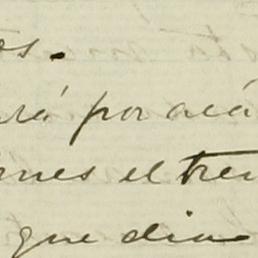 os.
rá por acá
ernes el tren
que dia